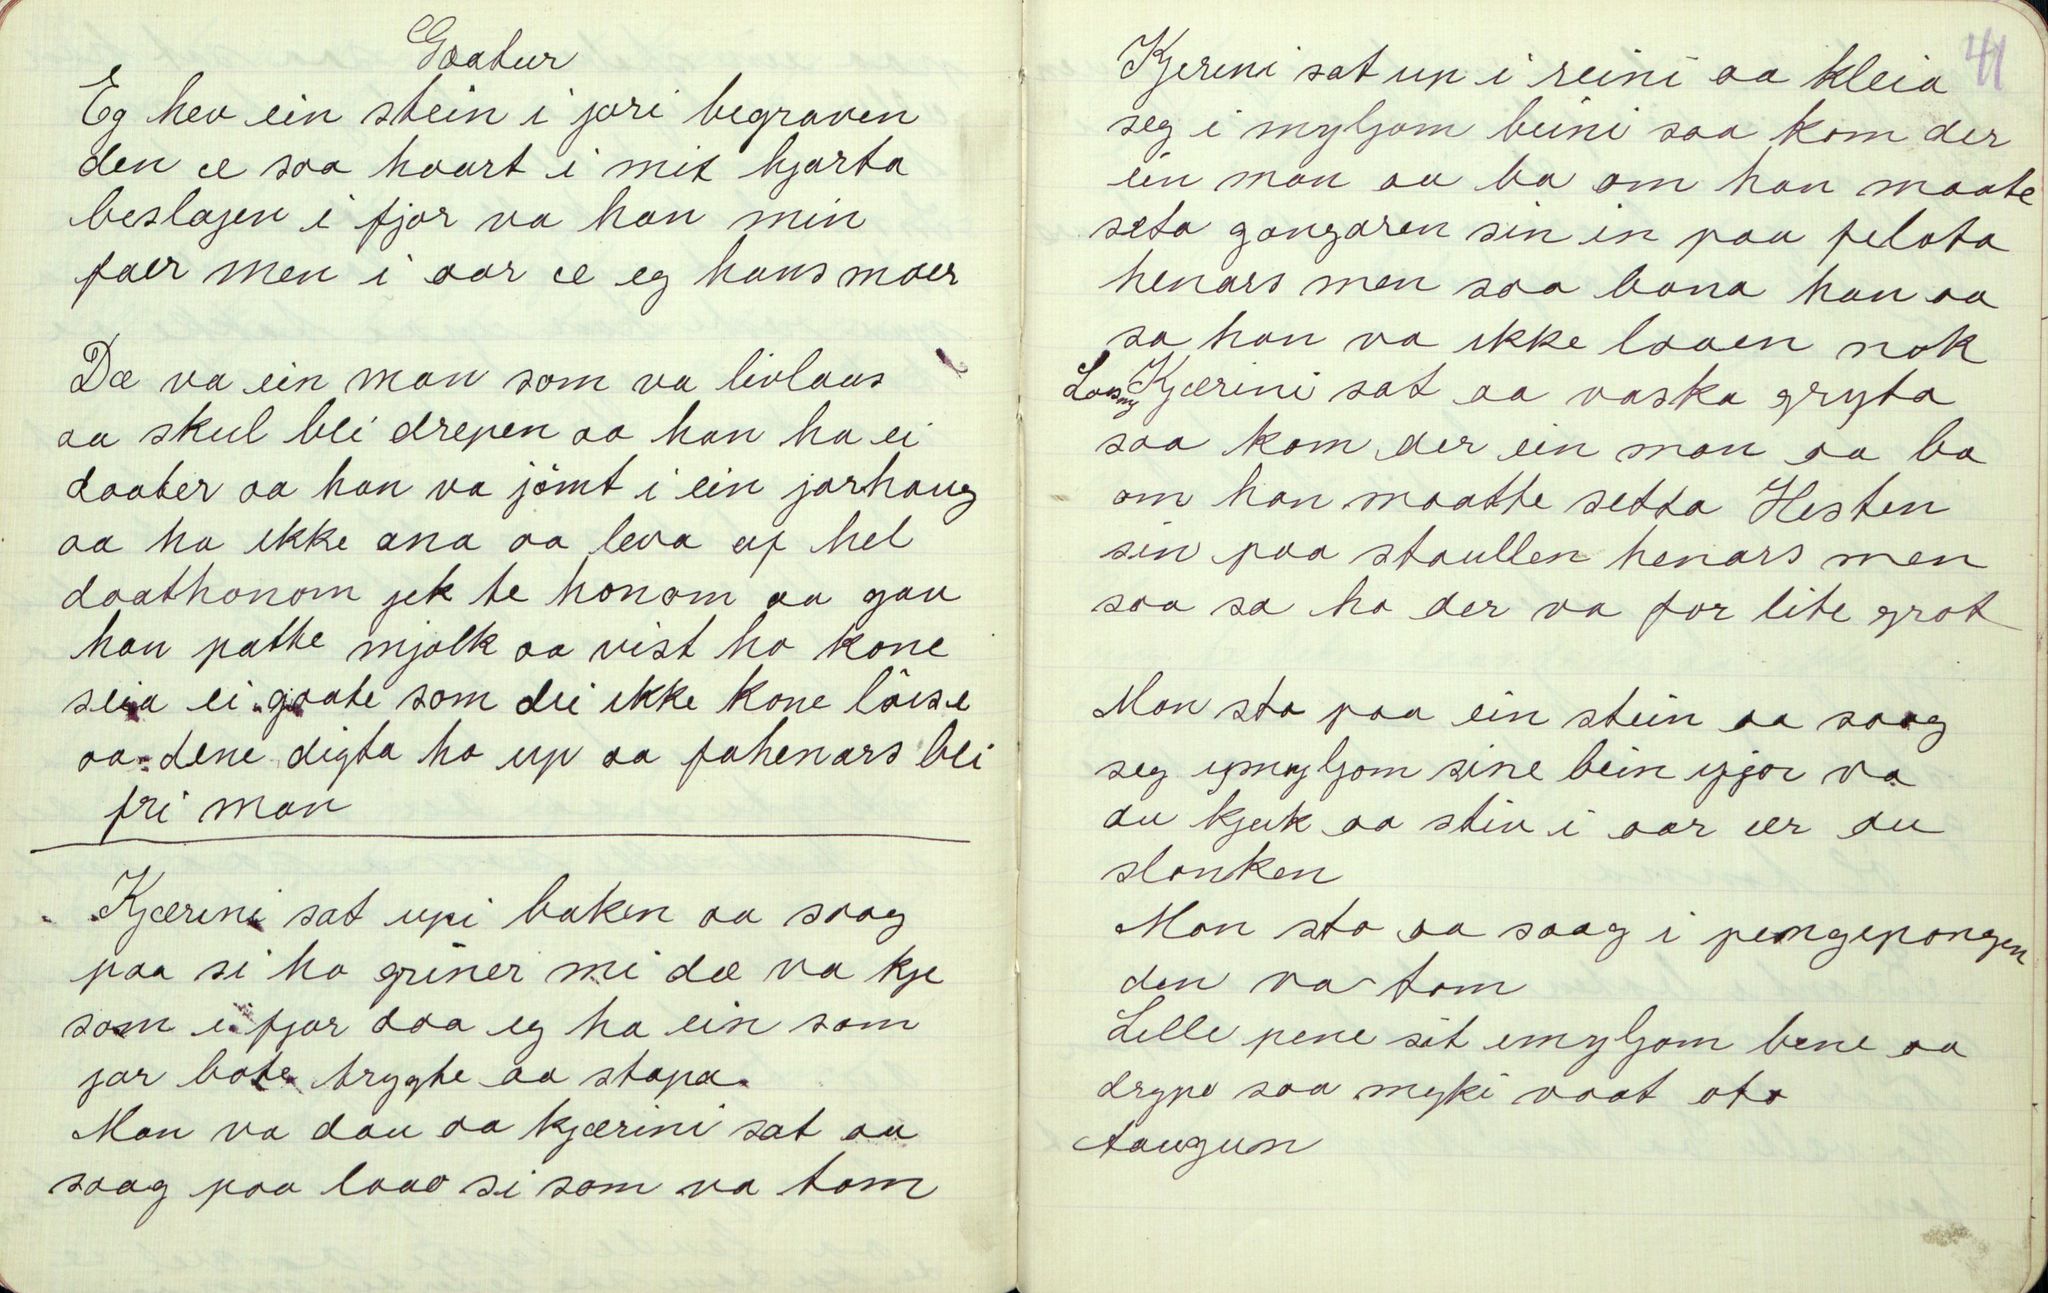 Gaatur
Eg hev ein stein i jori begraven
den æ saa haart i mit hjarta
beslagen i fjor va han min
faer men i aar æ eg hans moer
Dæ va ein man som va livlaus
aa skul bli drepen aa han ha ei
daater aa han va jömt i ein jorhaug
aa ha ikke ana aa leva af hel
daathonom jek te honom aa gau
han patte mjolk aa vist ho kone
seia ei gaate som dei ikke kone löise
aa dene digta ho up aa fahenars blei
fri man
Kjærini sat upi baken aa saag
paa si ho griner mi dæ va kje
som i fjor daa eg ha ein som
jor bote trygte aa stapa.
Man va dau aa kjærini sat aa
saag paa laao si som va tom
41
Kjerini sat up i reini aa kleia
seg i myljom beini saa kom der
ein man aa ba om han maate
seta gangaren sin in paa felata
henars men saa bana han aa
sa han va ikke laaen nok
Loesny Kjærini sat aa vaska gryta
saa kom der ein man aa ba
om han maatte setta Hesten
sin paa staullen henars men
saa sa ho der va for lite grot
Man sto paa ein stein aa saag
seg imyljom sine bein ifjor va
du kjæk aa stiv i aar ær du
slanken
Man sto aa saag i pengepongen
den va tom
Lille pene sit emyljom bene aa
drype saa myki vaat ata
taugun